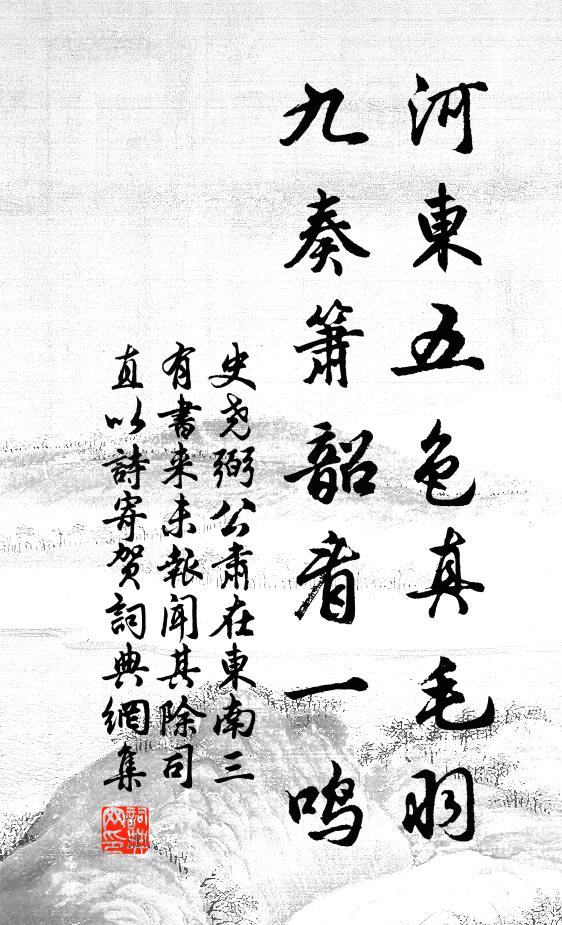 河東五色真毛羽
九奏簫韶看一鳴
史尧弼公肅在東南三
有書来未報聞其除司
直以詩寄贺詞典網集